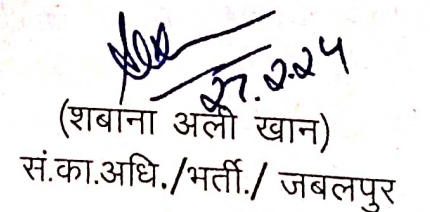 27.2.24
(शबाना अली खान)
सं.का.अधि./भर्ती./ जबलपुर